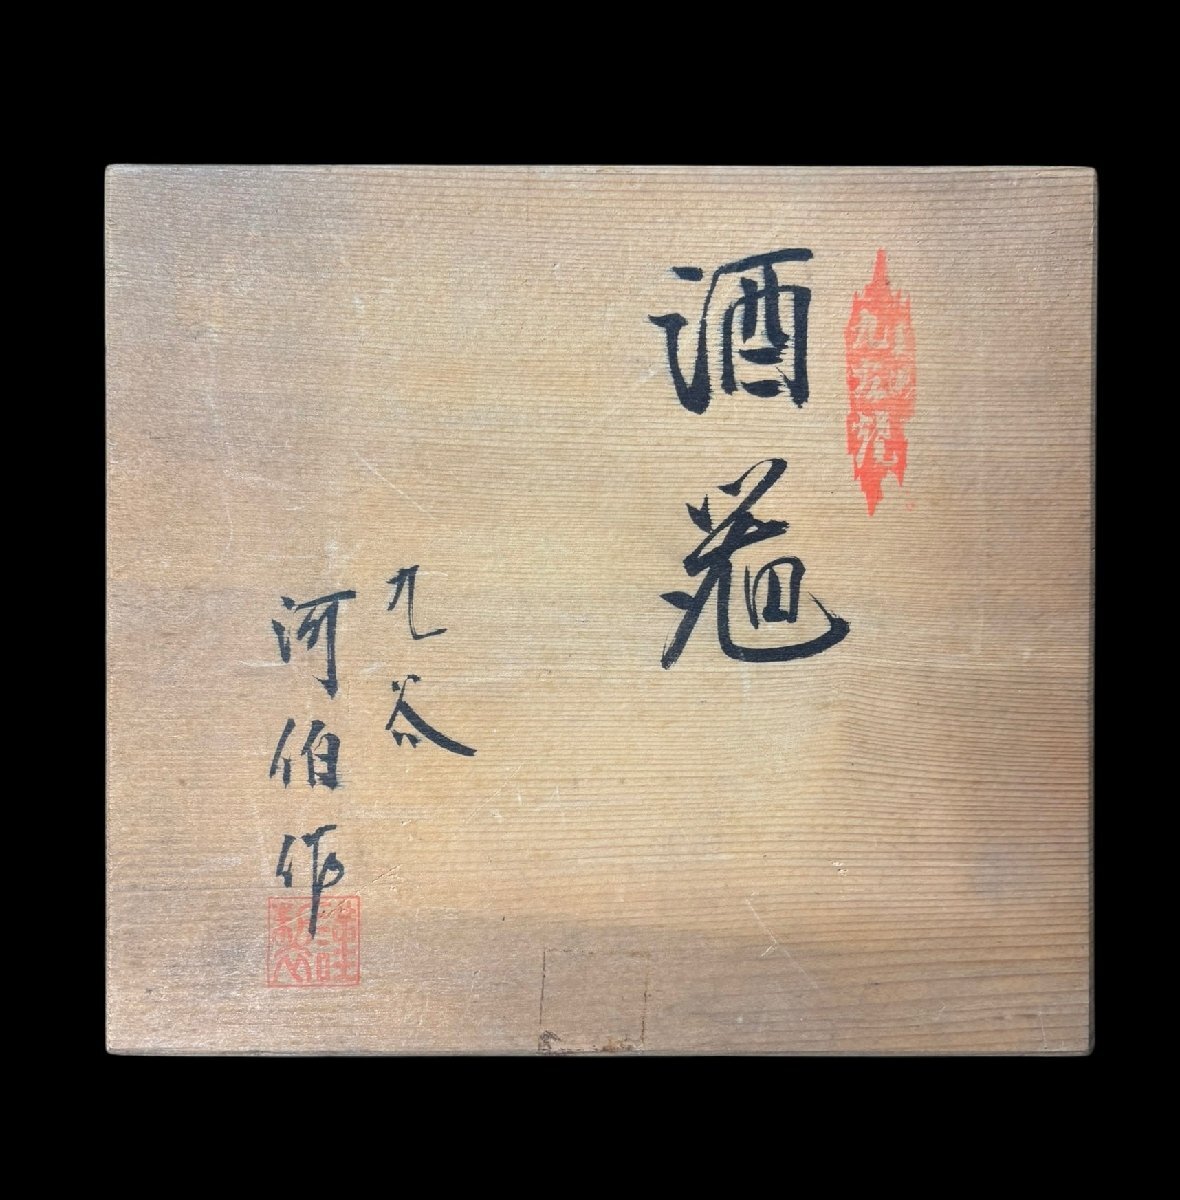 九谷焼
酒
九谷
河伯作